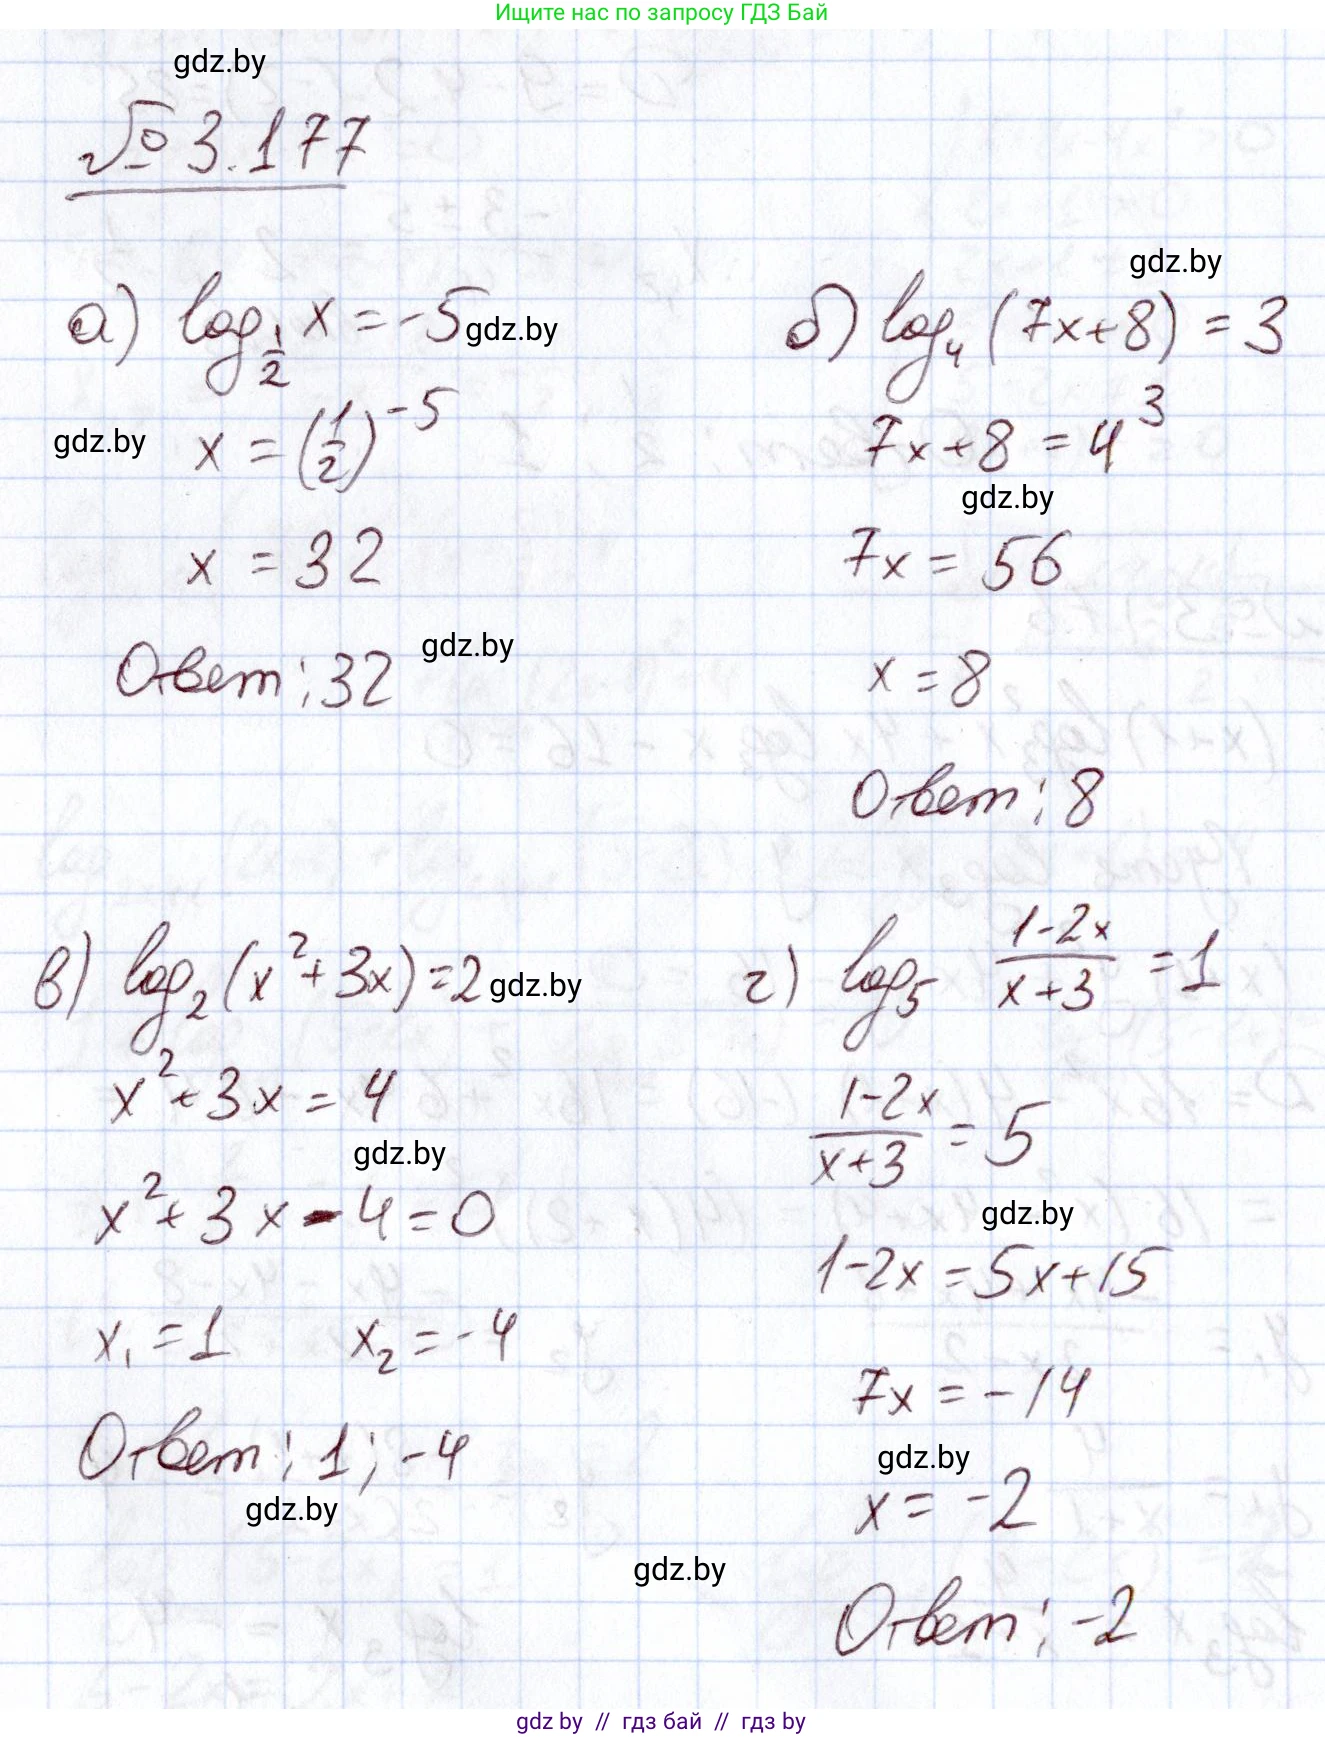 Ищите нас по запросу ГДЗ Бай
gdz.by
№ 3.177
а) log_{1/2} x = -5
gdz.by
gdz.by
x = (1/2)^{-5}
x = 32
Ответ: 32
gdz.by
gdz.by
б) log_4 (7x+8) = 3
7x+8 = 4^3
gdz.by
7x = 56
x = 8
Ответ: 8
в) log_2 (x^2+3x) = 2
gdz.by
x^2+3x = 4
gdz.by
x^2+3x-4=0
x_1 = 1 x_2 = -4
Ответ: 1; -4
gdz.by
г) log_5 (1-2x)/(x+3) = 1
(1-2x)/(x+3) = 5
gdz.by
1-2x = 5x+15
7x = -14
gdz.by
x = -2
gdz.by
Ответ: -2
gdz by // гдз бай // гдз by